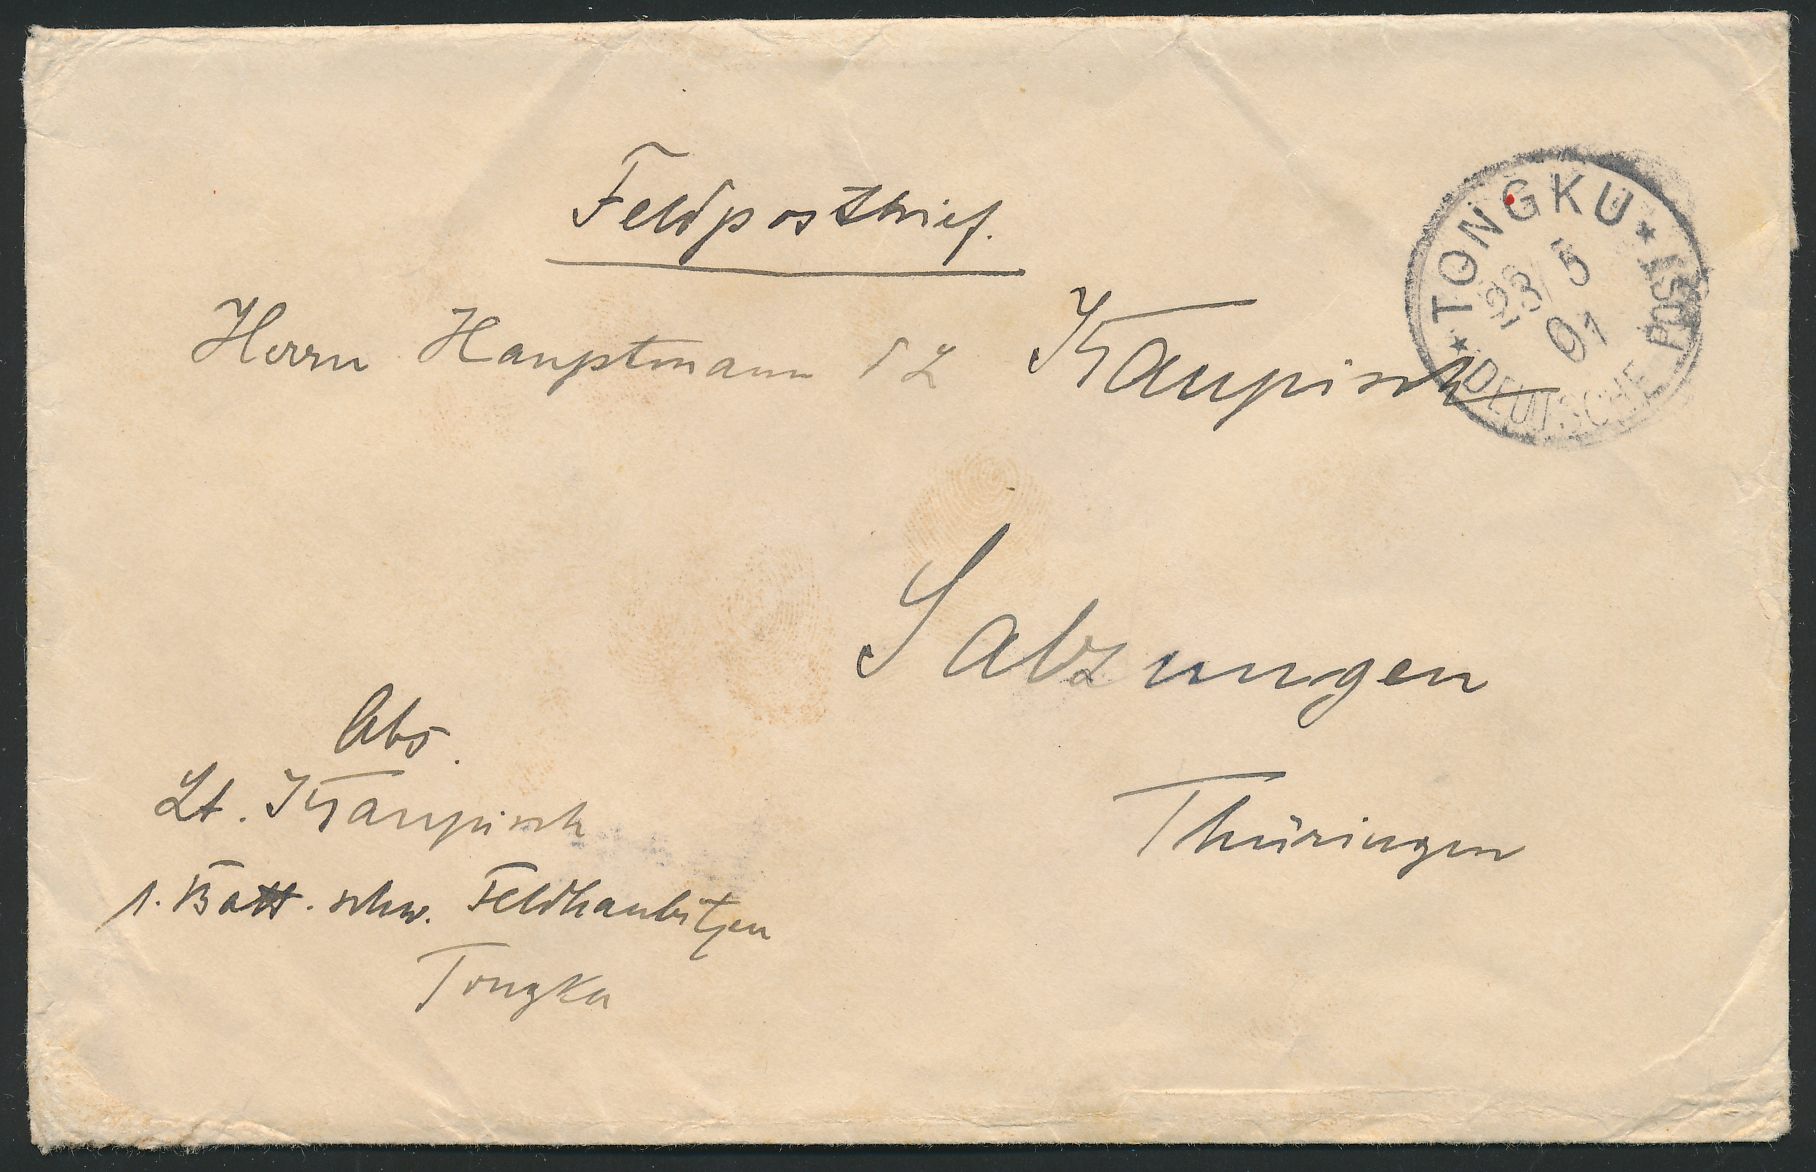 Feldpostbrief.
Herrn Hauptmann d L Kaupisch
Salzungen
Thüringen
Abs.
Lt. Kaupisch
1. Batt. schw. Feldhaubitzen
Tongku
* TONGKU *
23/5
01
DEUTSCHE POST